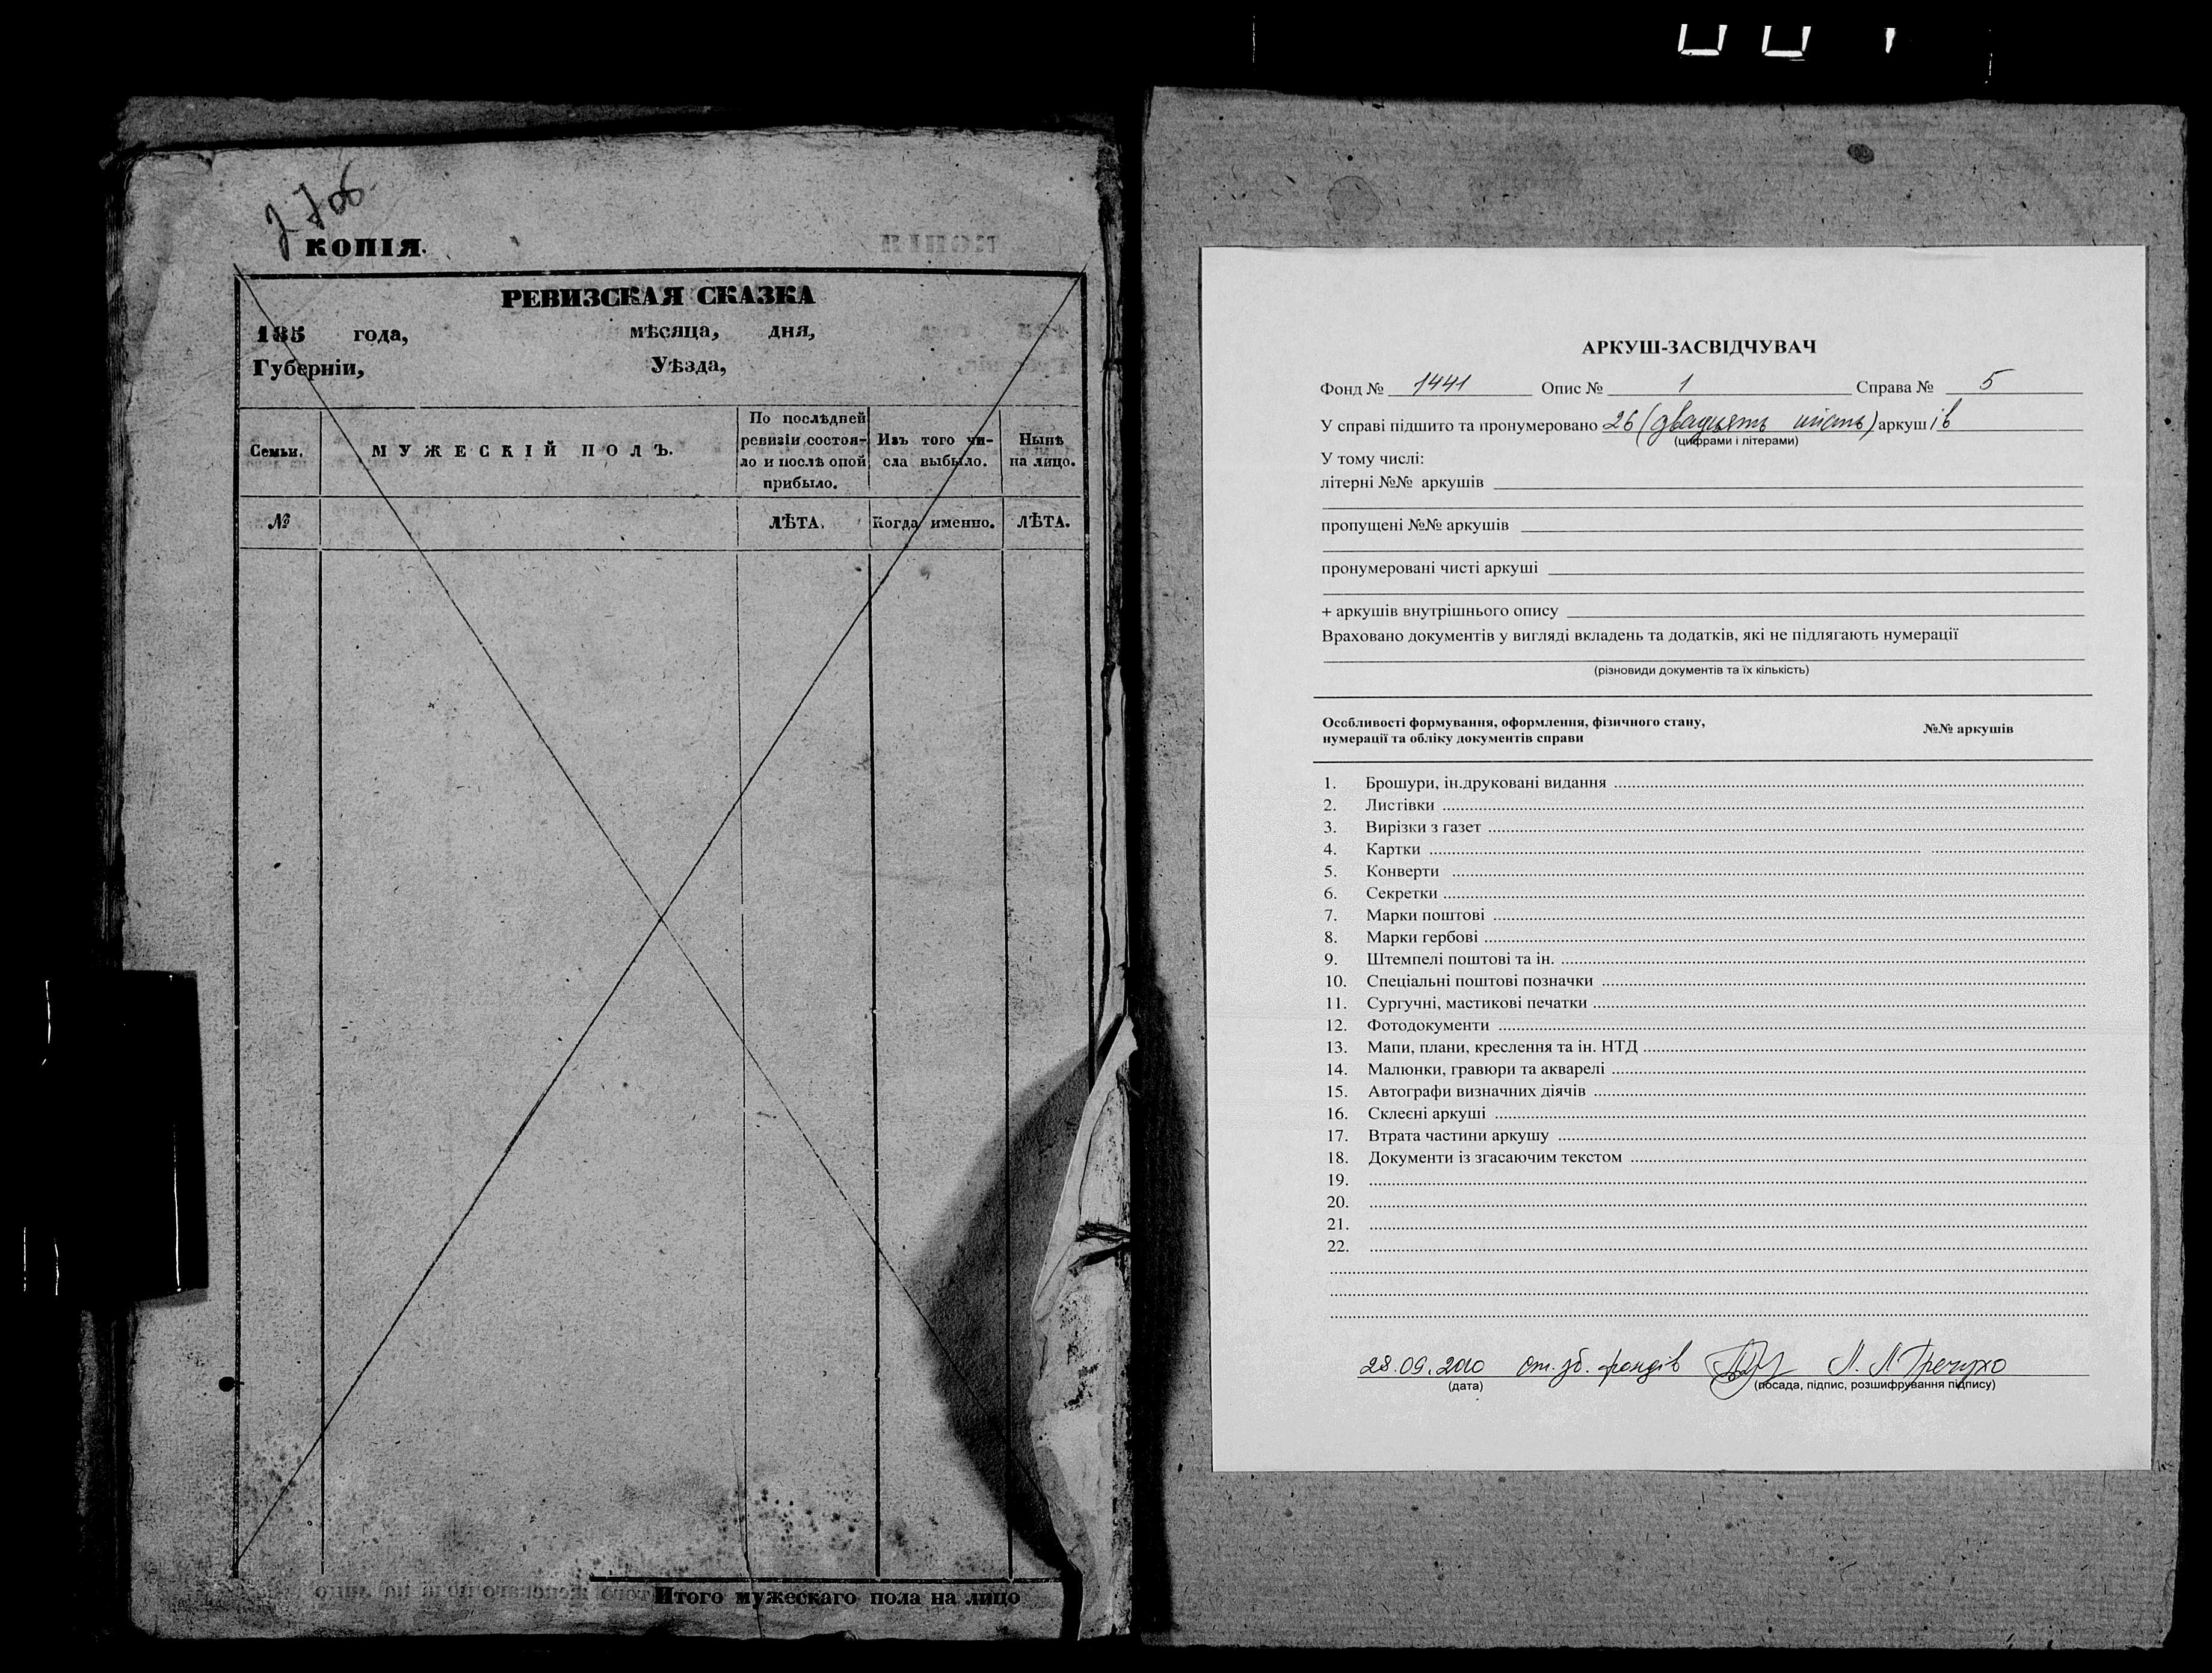 КОПІЯ.
РЕВИЗСКАЯ СКАЗКА
185 года, мѣсяца, дня,
Губерніи, Уѣзда,
Семьи.
МУЖЕСКІЙ ПОЛЪ.
По послѣдней
ревизіи состоя-
ло и послѣ оной
прибыло.
Изъ того чи-
сла выбыло.
Нынѣ
на лицо.
№
ЛѢТА.
Когда именно.
ЛѢТА.
Итого мужескаго пола на лицо
АРКУШ-ЗАСВІДЧУВАЧ
Фонд № 1441 Опис № 1 Справа № 5
У справі підшито та пронумеровано 26 (двадцять шість) аркушів
(цифрами і літерами)
У тому числі:
літерні №№ аркушів
пропущені №№ аркушів
пронумеровані чисті аркуші
+ аркушів внутрішнього опису
Враховано документів у вигляді вкладень та додатків, які не підлягають нумерації
(різновиди документів та їх кількість)
Особливості формування, оформлення, фізичного стану,
нумерації та обліку документів справи
№№ аркушів
1. Брошури, ін.друковані видання
2. Листівки
3. Вирізки з газет
4. Картки
5. Конверти
6. Секретки
7. Марки поштові
8. Марки гербові
9. Штемпелі поштові та ін.
10. Спеціальні поштові позначки
11. Сургучні, мастикові печатки
12. Фотодокументи
13. Мапи, плани, креслення та ін. НТД
14. Малюнки, гравюри та акварелі
15. Автографи визначних діячів
16. Склеєні аркуші
17. Втрата частини аркушу
18. Документи із згасаючим текстом
19.
20.
21.
22.
28.09.2010 ст. зб. фондів
(дата)
(посада, підпис, розшифрування підпису)